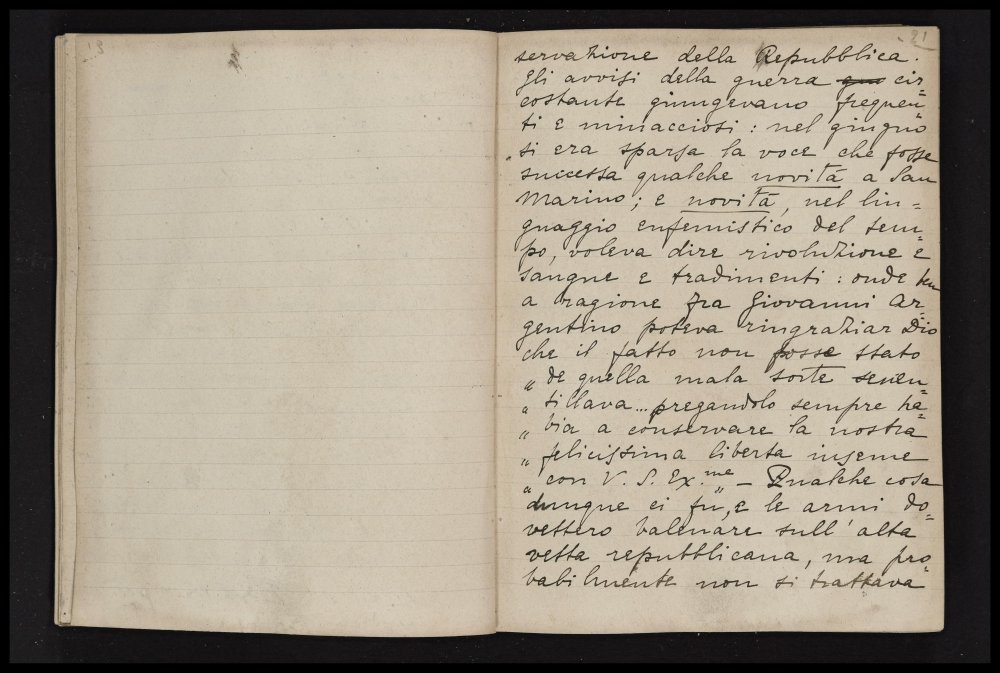 21
servazione della Repubblica.
Gli avvisi della guerra que cir=
costante giungevano frequen=
ti e minacciosi: nel giugno
si era sparsa la voce che fosse
successa qualche novità a San
Marino; e novità, nel lin=
guaggio eufemistico del tem=
po, voleva dire rivoluzione e
sangue e tradimenti: onde ben
a ragione fra Giovanni Ar=
gentino poteva ringraziar Dio
che il fatto non fosse stato
" de quella mala sorte seven=
" tillava... pregandolo sempre ha=
" bia a conservare la nostra
" felicissima liberta inseme
" con V. S. Ex.me" — Qualche cosa
dunque ci fu, e le armi do=
vettero balenare sull'alta
vetta repubblicana, ma pro=
babilmente non si trattava